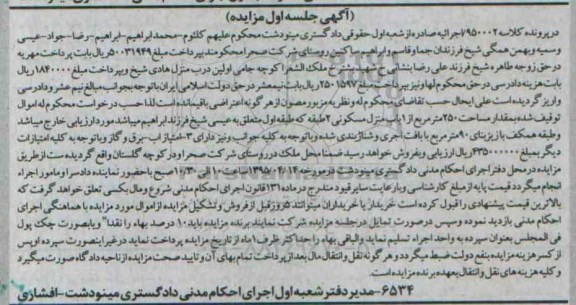 (آگهی جلسه اول مزایده)
در پرونده کلاسه ۷۹۵۰۰۰۲ اجرائیه صادره از شعبه اول حقوقی دادگستری مینودشت محکوم علیهم کلثوم - محمدابراهیم - ابراهیم - رضا - جواد - عیسی
وسمیه وبهمن همگی شیخ فرزندان جما وقاسم وابراهیم ساکنین روستای شرکت صحرا محکومند بپرداخت مبلغ ۵۰۰۳۱۹۴۹ ریال بابت پرداخت مهریه
در حق زوجه طاهره شیخ فرزند علی رضا بنشانی خ شهید مفتح خ ملک الشعرا کوچه جامی اولین درب منزل هادی شیخ وبپرداخت مبلغ ۱۸۴۰۰۰۰ ریال
بابت هزینه دادرسی در حق محکوم لها ونیز بپرداخت مبلغ ۲۵۰۱۵۹۷ ریال بابت نیمعشر در حق دولت اسلامی ایران با توجه بجوانب مبالغ نیم عشر و دادرسی
واریز گردیده است علی ایحال حسب تقاضای محکوم له ونظریه مزبور مصون از هر گونه اعتراضی باقیمانده است لذا حسب درخواست محکوم له اموال
توقیف شده بمقدار مساحت ۲۵۰ مترمربع از ۱ باب منزل مسکونی ۲ طبقه که طبقه اول متعلق به عیسی شیخ فرزند ابراهیم میباشد مورد ارزیابی خارج میباشد
وطبقه همکف با زیربنای ۹۰ مترمربع با بافت آجری وشناژبندی شده وباتوجه به کلیه جوانب ونیز دارای ۳ امتیاز اب - برق و گاز وباتوجه به کلیه امتیازات
دیگر بمبلغ ۴۳۵۰۰۰۰۰۰ ریال ارزیابی وبفروش خواهد رسید ضمنا محل ملک در روستای شرکت صحرا ودر کوچه گلستان واقع گردیده ست از طریق
مزایده در محل دفتر اجرای احکام مدنی دادگستری مینودشت در مورخه ۱۳۹۵/۰۴/۱۳ ساعت ۱۰ الی ۱۰:۳۰ صبح با حضور نماینده دادسرا و مامور اجراء
انجام میگردد قیمت پایه از مبلغ کارشناسی وبارعایت سایر قیود مندرج در ماده ۱۳۱ قانون اجرای احکام مدنی شروع ومال بکسی تعلق خواهد گرفت که
بالاترین قیمت پیشنهادی را قبول کرده است خریدار یا خریداران میتوانند ۵ روز قبل از فروش و تشکیل مزایده از اموال مورد مزایده با هماهنگی اجرای
احکام مدنی بازدید نموده وسپس در صورت تمایل در جلسه مزایده شرکت نمایند برنده مزایده باید ۱۰ درصد بهاء را نقدا" ویا بصورت چک پول
فی المجلس بعنوان سپرده به واحد اجراء تسلیم نماید والباقی بهاء را حداکثر ظرف ۱ ماه از تاریخ مزایده پرداخت نماید در غیر اینصورت سپرده او پس
از کسر هزینه مزایده بنفع دولت ضبط میگردد و هر گونه نقل وانتقال مال بعد از پرداخت تمام بهای آن و تایید صحت مزایده از ناحیه دادگاه صورت میگیرد
و کلیه هزینه های نقل وانتقال بعهده برنده مزایده است.
۶۵۳۴ - مدیر دفتر شعبه اول اجرای احکام مدنی دادگستری مینودشت - افشاری